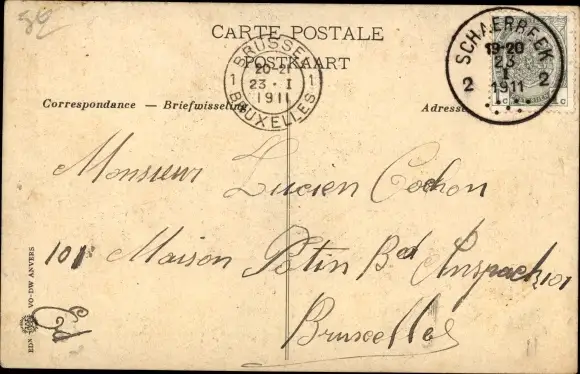 CARTE POSTALE
POSTKAART
Correspondance — Briefwisseling
Adresse
BRUSSEL
1 20-21 1
23·I
1911
BRUXELLES
SCHAERBEEK
19-20
2 23 2
I
1911
Monsieur Lucien Cochon
101 Maison Potin Bd Anspach, 101
Bruxelles
VO-DW ANVERS